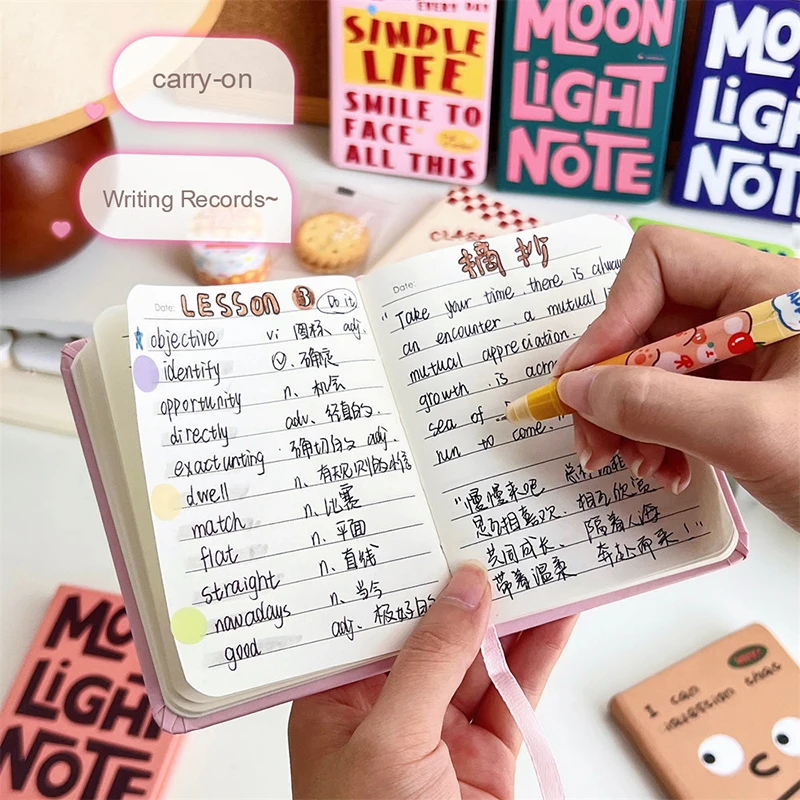 carry-on
Writing Records~
EVERY DAY
SIMPLE
LIFE
SMILE TO
FACE
ALL THIS
MOON
LIGHT
NOTE
MO
LIGH
NOT
Date:
LESSON 3
Do it
objective vi 图标 adj.
identify 确定
opportunity n. 机会
directly adv. 径直的
exactunting 确切的 adj.
dwell n. 有规则的
match n. 比赛
flat n. 平面
straight n. 直线
nowadays n. 当今
good adj. 极好的
Date:
摘抄
"Take your time, there is always
an encounter, a mutual
mutual appreciation.
growth is
sea of
run to come.
"慢慢来吧 总有
是互相喜欢、相互欣赏
共同成长、隔着人海
带着温柔 奔赴而来！"
MO
LIGH
NOTE
I can